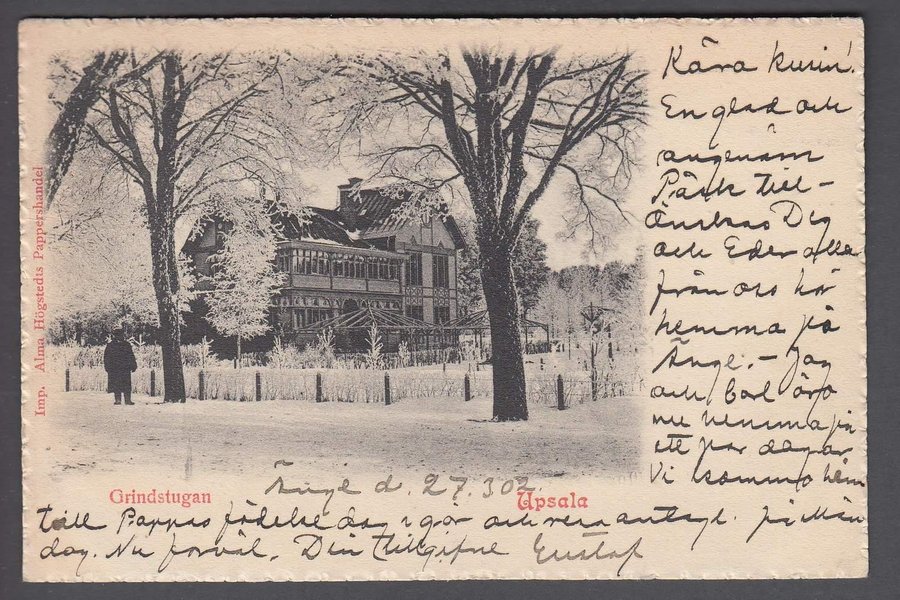 Kära kusin!
En glad och
angenäm
Påsk till-
önskas Dig
och Eder alla
från oss här
hemma på
Änge. - Jag
och Carl äro
nu hemma på
ett par dagar
Vi kommo hem
Imp. Alma Högstedts Pappershandel
Änge d. 27.3 02.
Grindstugan Upsala
till Pappas födelsedag igår och resa antagl. på Mån
dag. Nu farväl. Din tillgifne Gustaf